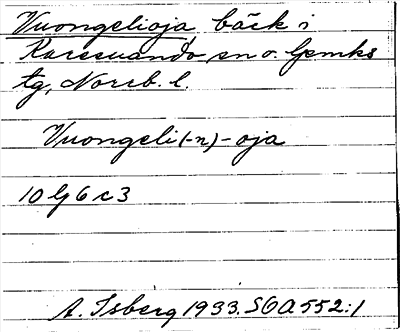 Vuongelioja, bäck i
Karesuando, sn o. lfmks
tg, Norrb. l.
Vuongeli(-n)-oja
10 lG 6 c 3
A. Isberg 1933. SOA 552:1